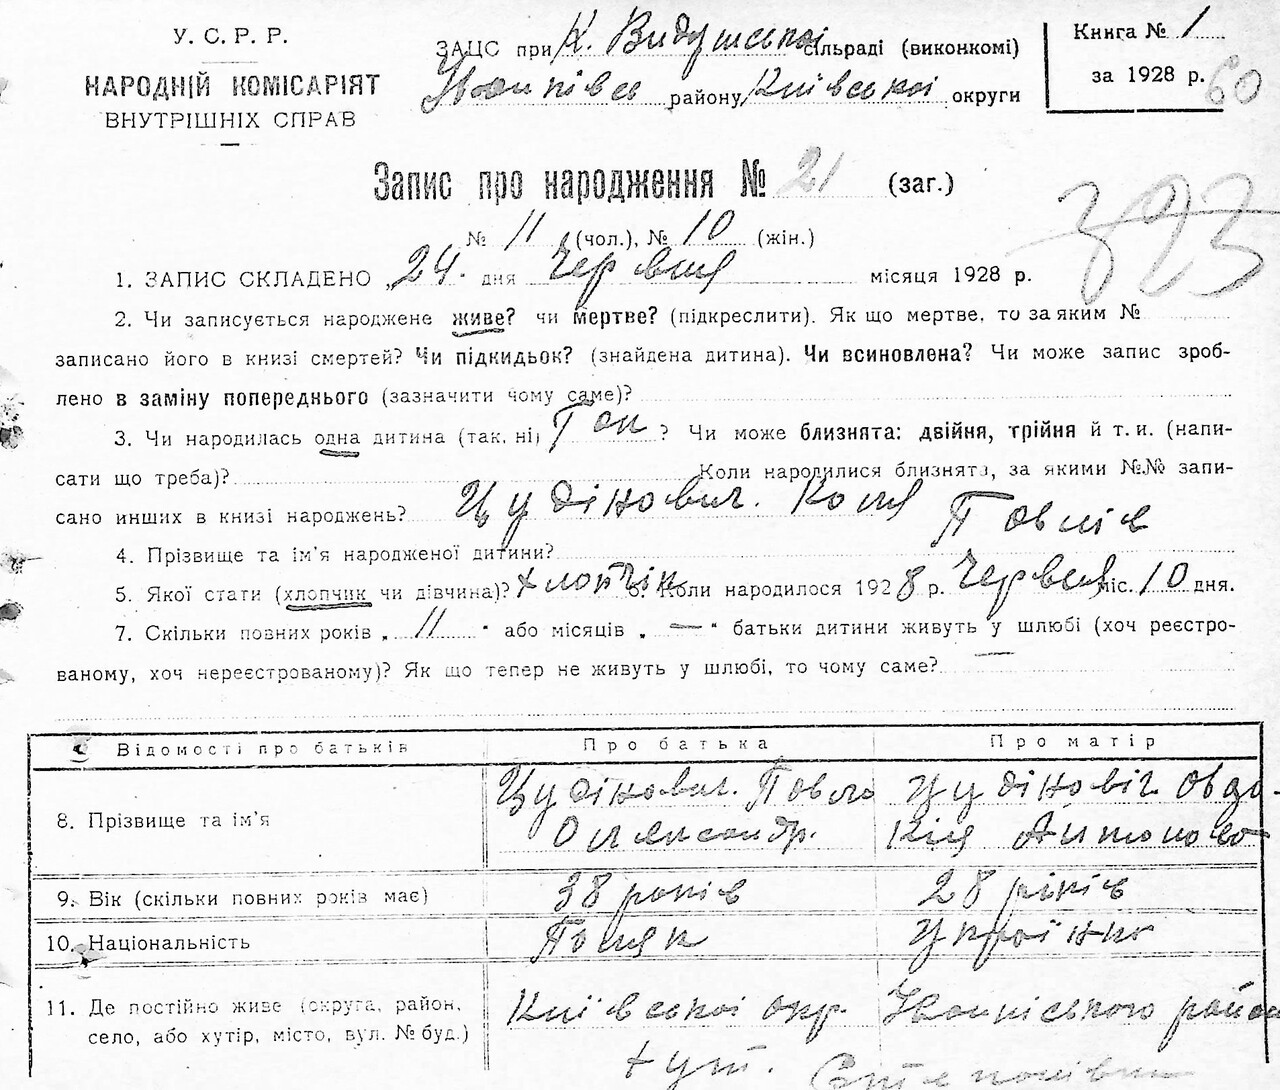 У. С. Р. Р.
НАРОДНІЙ КОМІСАРІЯТ
ВНУТРІШНІХ СПРАВ
ЗАЦС при К. Видумської сільраді (виконкомі)
району Київської округи
Книга № 1
за 1928 р.
60
Запис про народження № 21 (заг.)
323
№ 11 (чол.), № 10 (жін.)
1. ЗАПИС СКЛАДЕНО „24 дня Червня місяця 1928 р.
2. Чи записується народжене живе? чи мертве? (підкреслити). Як що мертве, то за яким №
записано його в книзі смертей? Чи підкидьок? (знайдена дитина). Чи всиновлена? Чи може запис зроб-
лено в заміну попереднього (зазначити чому саме)?
3. Чи народилась одна дитина (так, ні) Так ? Чи може близнята: двійня, трійня й т. и. (напи-
сати що треба)? Коли народилися близнята, за якими №№ запи-
сано инших в книзі народжень? Цудінович. Коля
Павлів
4. Прізвище та ім'я народженої дитини?
5. Якої стати (хлопчик чи дівчина)? хлопчік 6. Коли народилося 1928 р. Червня міс. 10 дня.
7. Скільки повних років „ 11 " або місяців „ — " батьки дитини живуть у шлюбі (хоч реєстро-
ваному, хоч нереєстрованому)? Як що тепер не живуть у шлюбі, то чому саме?
Відомості про батьків
Про батька
Про матір
8. Прізвище та ім'я
Цудінович. Павло
Олександр.
Цудіновіч Овдо-
кія Антонова
9. Вік (скільки повних років має)
38 років
28 років
10. Національність
Поляк
Українка
11. Де постійно живе (округа, район,
село, або хутір, місто, вул. № буд.)
Київської окр.
хут.
району